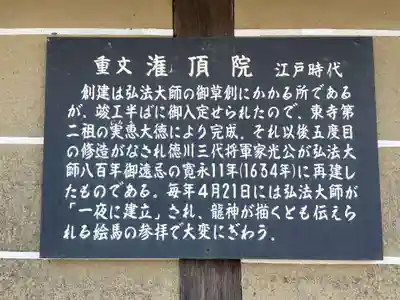 重文 灌頂院 江戸時代
創建は弘法大師の御草創にかかる所である
が、竣工半ばに御入定せられたので、東寺第
二祖の実恵大徳により完成、それ以後五度目
の修造がなされ徳川三代将軍家光公が弘法大
師八百年御遠忌の寛永11年(1634年)に再建し
たものである。毎年4月21日には弘法大師が
「一夜に建立」され、龍神が描くとも伝えら
れる絵馬の参拝で大変にぎわう.